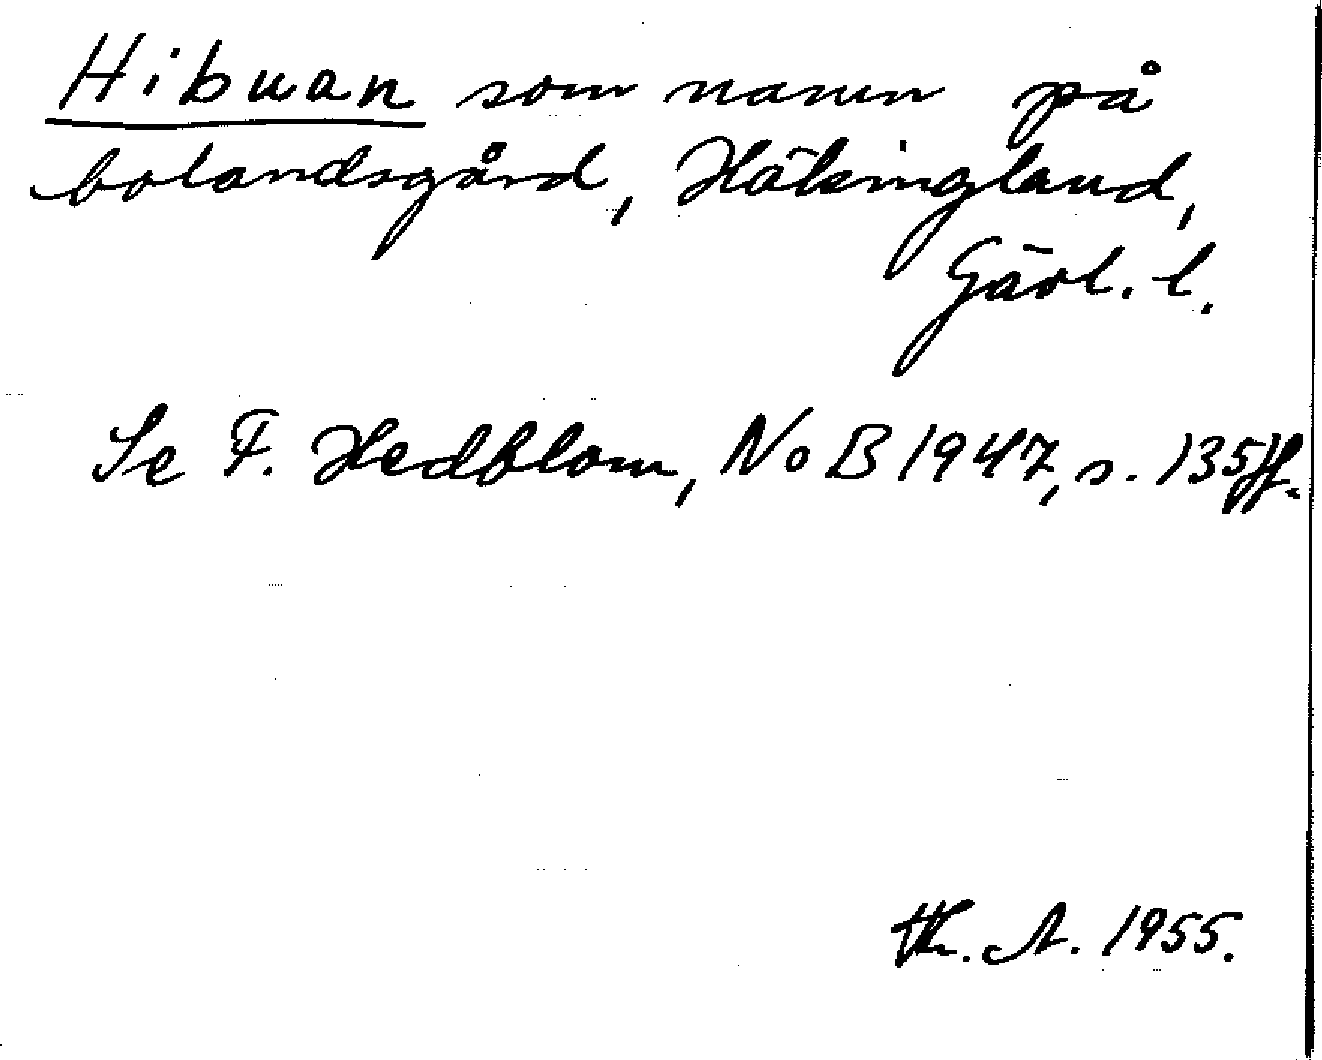 Hibuan som namn på
bolandsgård, Hälsingland,
Gävl. l.
Se F. Hedblom, NoB 1947, s. 135ff.
Th. A. 1955.